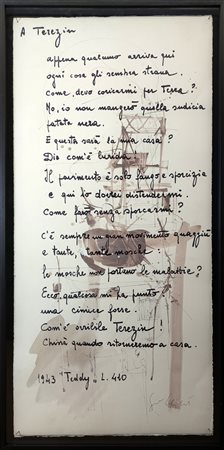 A Terezin
appena qualcuno arriva qui
ogni cosa gli sembra strana.
Come, devo coricarmi per Terra?
No, io non mangerò quella sudicia
patata nera.
E questa sarà la mia casa?
Dio com'è lurida.
Il pavimento è solo fango e sporcizia
e qui io dovrei distendermi.
Come farò senza sporcarmi?
C'è sempre un gran movimento quaggiù
e tante, tante mosche.
le mosche non portano le malattie?
Ecco, qualcosa mi ha punto?
una cimice forse.
Com'è orribile Terezin!
Chissà quando ritorneremo a casa.
1943 "Teddy" L. 410